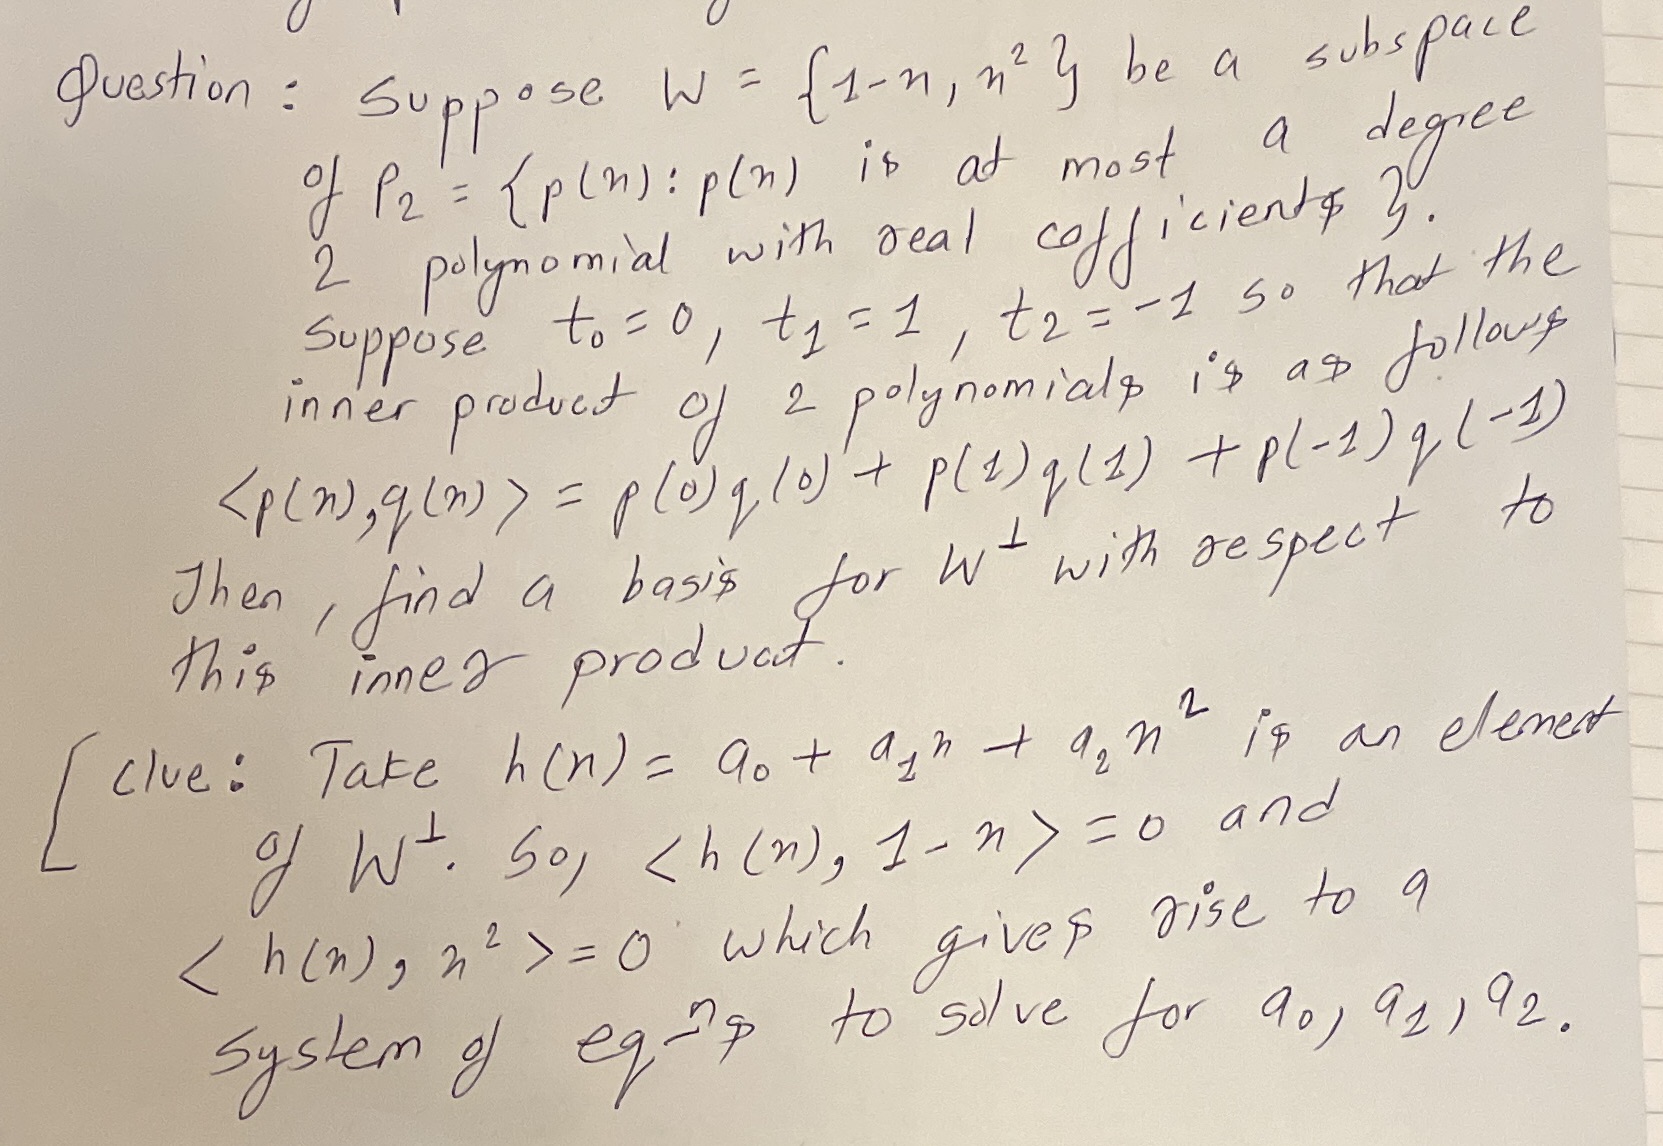 Question: Suppose W = {1-x, x² } be a subspace
of P₂ = {p(x): p(x) is at most a degree
2 polynomial with real cofficients }.
Suppose t₀ = 0, t₁ = 1, t₂ = -1 so that the
inner product of 2 polynomials is as follows
<p(x), q(x)> = p(0)q(0) + p(1)q(1) + p(-1)q(-1)
Then, find a basis for W^⊥ with respect to
this inner product.
[Clue: Take h(x) = a₀ + a₁x + a₂x² is an element
of W^⊥. So, <h(x), 1-x> = 0 and
<h(x), x²> = 0 which gives rise to a
system of eqⁿs to solve for a₀, a₁, a₂.